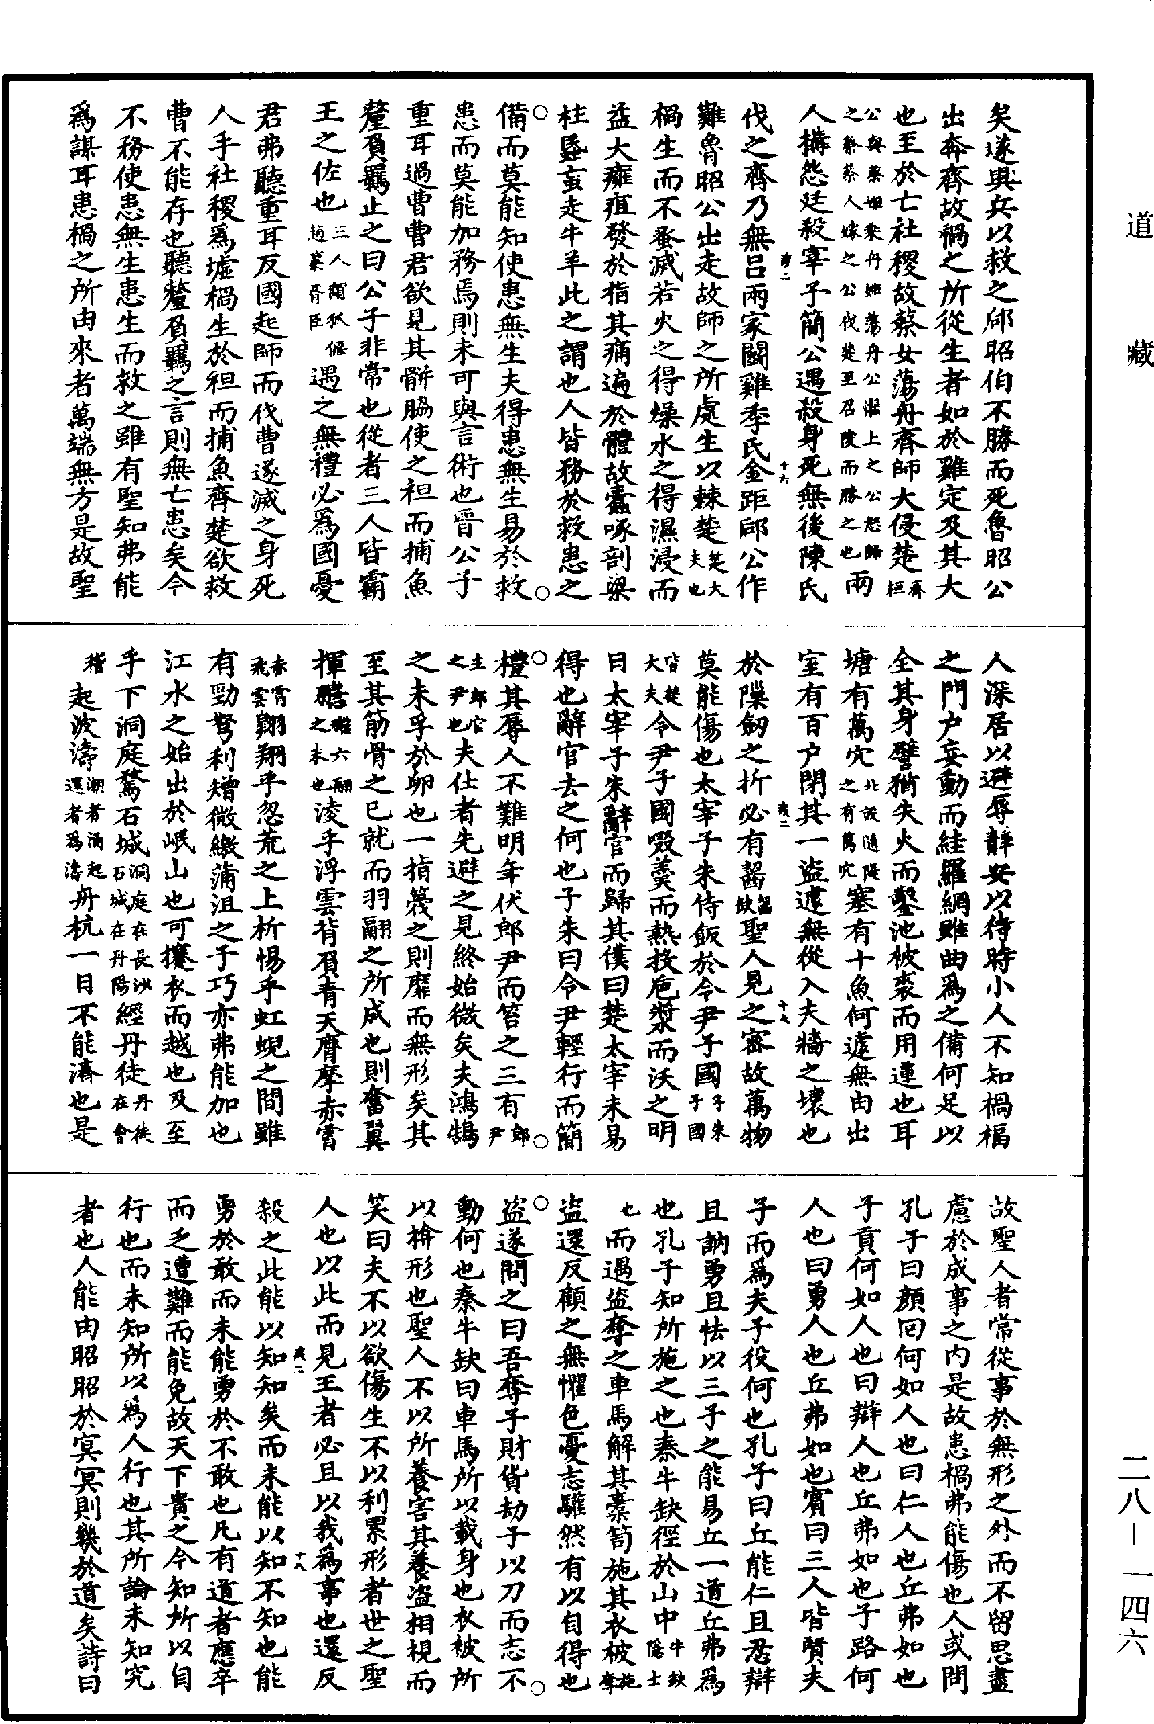 道藏
二八—一四六
矣遂興兵以救之郈昭伯不勝而死魯昭公
出奔齊故禍之所從生者如於雞定及其大
也至於亡社稷故蔡女蕩舟齊師大侵楚齊桓
公與蔡姬乘舟姬蕩舟公懼止之公怒歸之蔡蔡人嫁之公伐楚至召陵而勝之也兩
人搆怨廷殺宰予簡公遇殺身死無後陳氏
伐之齊乃無呂兩家鬬雞季氏金距郈公作
難魯昭公出走故師之所處生以棘楚楚大夫也
禍生而不蚤滅若火之得燥水之得濕浸而
益大癰疽發於指其痛遍於體故蠹啄剖梁
柱蚉䖟走牛羊此之謂也人皆務於救患之
備而莫能知使患無生夫得患無生易於救
患而莫能加務焉則未可與言術也晉公子
重耳過曹曹君欲見其骿脇使之袒而捕魚
釐負羈止之曰公子非常也從者三人皆霸
王之佐也三人謂狐偃趙衰胥臣遇之無禮必爲國憂
君弗聽重耳反國起師而伐曹遂滅之身死
人手社稷爲墟禍生於袒而捕魚齊楚欲救
曹不能存也聽釐負羈之言則無亡患矣今
不務使患無生患生而救之雖有聖知弗能
爲謀耳患禍之所由來者萬端無方是故聖
人深居以避辱靜安以待時小人不知禍福
之門戶妄動而絓羅網雖曲爲之備何足以
全其身譬猶失火而鑿池被裘而用箑也耳
塘有萬穴北説隨隄之有萬穴塞有十魚何遽無由出
室有百戶閉其一盜遽無從入夫牆之壞也
於隟劒之折必有齧齧缺聖人見之宻故萬物
莫能傷也太宰子朱侍飯於令尹子國子朱子國
皆楚大夫令尹子國啜羹而熱投巵漿而沃之明
日太宰子朱辭官而歸其僕曰楚太宰未易
得也辭官去之何也子朱曰令尹輕行而簡
禮其辱人不難明年伏郎尹而笞之三百郎尹
主郎官之尹也夫仕者先避之見終始微矣夫鴻鵠
之未孚於卵也一指蔑之則靡而無形矣其
至其筋骨之已就而羽翮之所成也則奮翼
揮䎒䎒六翮之末也淩乎浮雲背負青天膺摩赤霄
赤霄飛雲翺翔乎忽荒之上析惕乎虹蜺之間雖
有勁弩利矰微繳蒲沮之子巧亦弗能加也
江水之始出於岷山也可攓衣而越也及至
乎下洞庭騖石城洞庭在長沙石城在丹陽經丹徒丹徒在會
稽起波濤潮者涌起還者爲濤舟杭一日不能濟也是
故聖人者常從事於無形之外而不留思盡
慮於成事之內是故患禍弗能傷也人或問
孔子曰顔回何如人也曰仁人也丘弗如也
子貢何如人也曰辯人也丘弗如也子路何
人也曰勇人也丘弗如也賓曰三人皆賢夫
子而爲夫子役何也孔子曰丘能仁且忍辯
且訥勇且怯以三子之能易丘一道丘弗爲
也孔子知所施之也秦牛缺徑於山中牛缺隱士
也而遇盜奪之車馬解其橐笥施其衣被施奪
盜還反顧之無懼色憂志驩然有以自得也
盜遂問之曰吾奪子財貨劫子以刀而志不
動何也秦牛缺曰車馬所以載身也衣被所
以揜形也聖人不以所養害其養盜相視而
笑曰夫不以欲傷生不以利累形者世之聖
人也以此而見王者必且以我爲事也還反
殺之此能以知知矣而未能以知不知也能
勇於敢而未能勇於不敢也凡有道者應卒
而乏遭難而能免故天下貴之今知所以自
行也而未知所以爲人行也其所論未知究
者也人能由昭昭於冥冥則幾於道矣詩曰